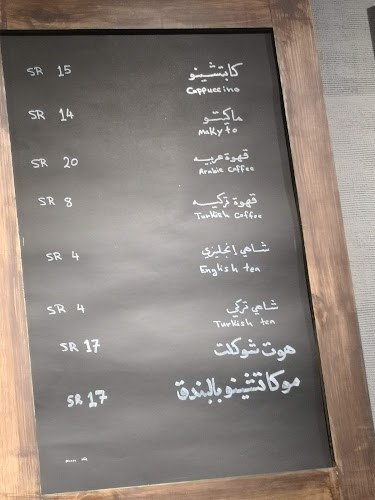 كابتشينو SR 15
Cappuccino
ماكيتو SR 14
Makyto
قهوة عربيه SR 20
Arabic coffee
قهوة تركيه SR 8
Turkish coffee
شاهي إنجليزي SR 4
English tea
شاهي تركي SR 4
Turkish tea
هوت شوكلت SR 17
موكاتشينو بالبندق SR 17